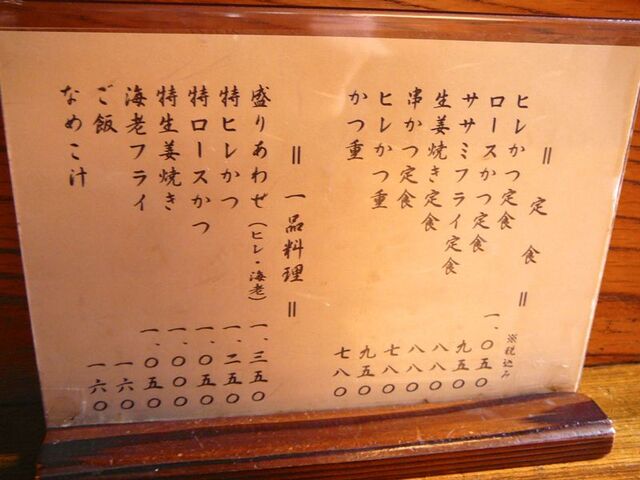 ＝ 定食 ＝ ※税込み
ヒレかつ定食 一、〇五〇
ロースかつ定食 九五〇
ササミフライ定食 八八〇
生姜焼き定食 八八〇
串かつ定食 七八〇
ヒレかつ重 九五〇
かつ重 七八〇
＝ 一品料理 ＝
盛りあわせ（ヒレ・海老） 一、三五〇
特ヒレかつ 一、二五〇
特ロースかつ 一、〇五〇
特生姜焼き 一、〇〇〇
海老フライ 一、〇五〇
ご飯 一六〇
なめこ汁 一六〇